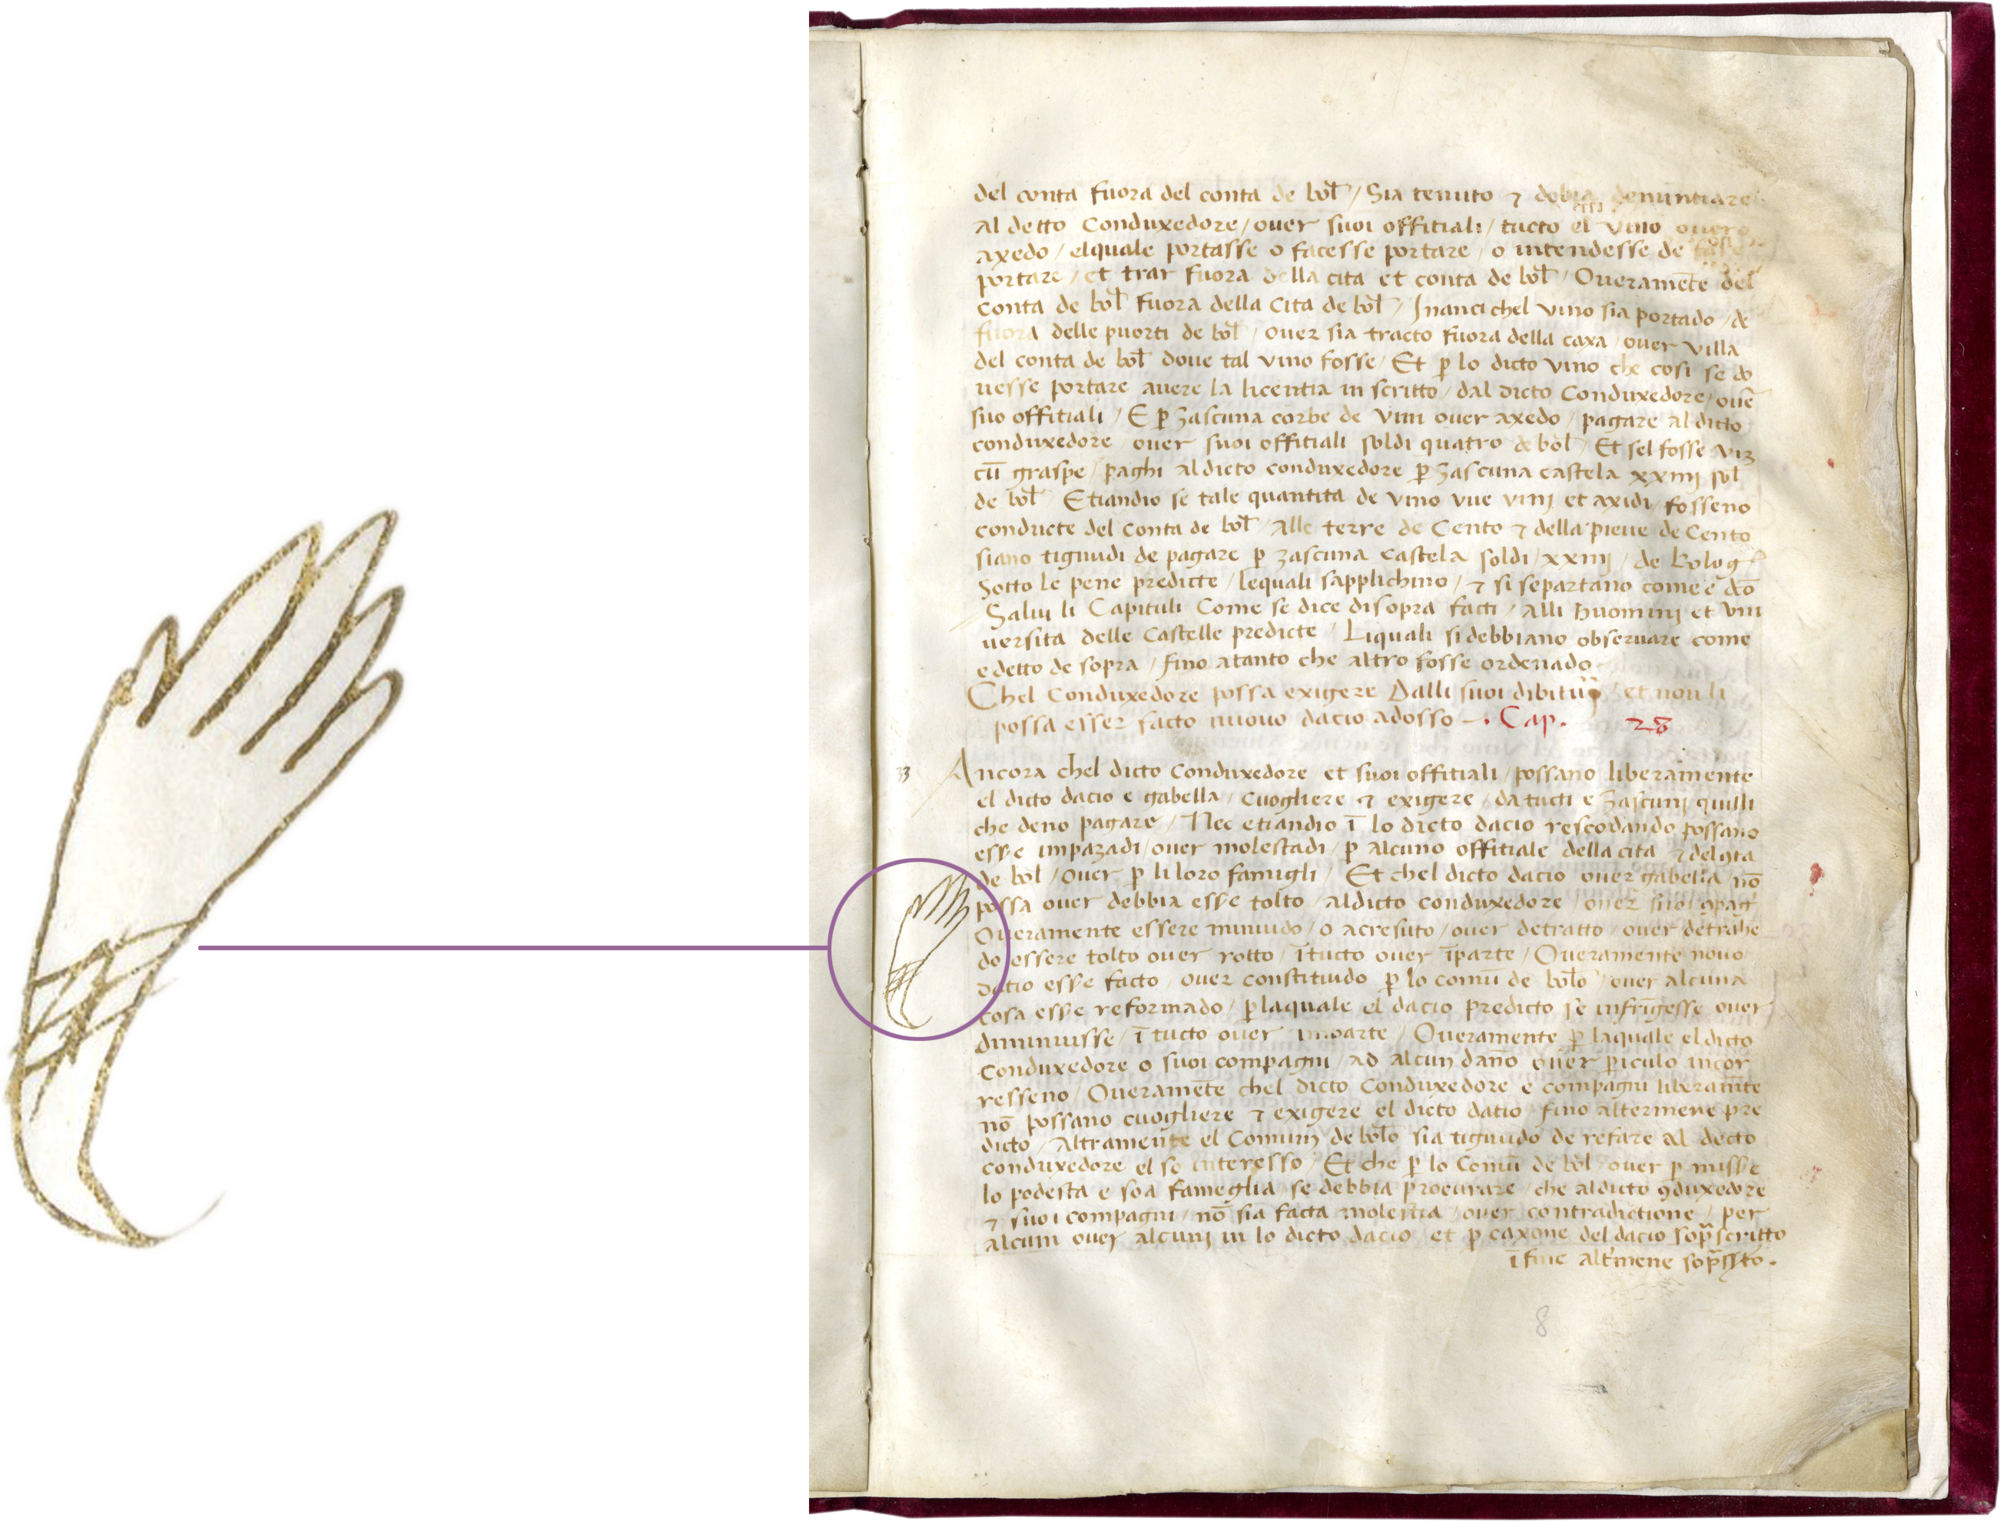 del conta fuora del conta de bol / Sia tenuto ⁊ dobia denuntiare
al detto Conduxedore / ouer suoi offitiali / tucto el vino ouero
axedo / elquale portasse o facesse portare / o intendesse de
portare / et trar fuora della cita et conta de bol / Oueramẽte del
Conta de bol fuora della Cita de bol / Inanci chel vino sia portado / de
fuora delle puorti de bol / ouer sia tracto fuora della caxa / ouer villa
del conta de bol doue tal vino fosse / Et ꝑ lo dicto vino che cosi se do
uesse portare auere la licentia in scritto / dal dicto Conduxedore / ouẽ
suo offitiali / E ꝑ zascuna corbe de vini ouer axedo / pagare al dicto
conduxedore ouer suoi offitiali soldi quatro de bol / Et sel fosse
cũ graspe / paghi al dicto conduxedore ꝑ zascuna castela xxiiij sol
de bol / Etiandio se tale quantita de vino vue vinj et axidi / fosseno
conducte del conta de bol / Alle terre de Cento ⁊ della pieue de Cento
siano tignudi de pagare ꝑ zascuna castela soldi / xxiiij / de Bolog
Sotto le pene predicte / lequali sapplichino / ⁊ si separtano come e
Salui li Capituli Come se dice disopra facti / alli huominj et vni
uersita delle Castelle predicte / Liquali si debbiano obseruare come
e detto de sopra / fino atanto che altro fosse ordenado
Chel Conduxedore possa exigere Dalli suoi / et non li
possa esser facto nuouo dacio adosso – . Cap. 28
33 Ancora chel dicto Conduxedore et suoi offitiali / possano liberamente
el dicto dacio e gabella / cuogliere ⁊ exigere / da tucti e zascunj quilli
che deno pagare / Nec etiandio ĩ lo dicto dacio rescodando possano
esse impazadi / ouer molestadi / ꝑ alcuno offitiale della cita ⁊ del
de bol / ouer ꝑ li loro famigli / Et chel dicto dacio ouer gabella / nõ
possa ouer debbia esse tolto / aldicto conduxedore / ouer suoi
Oueramente essere minuido / o acresuto / ouer detratto / ouer detrahẽ
do essere tolto ouer rotto / ĩ tucto ouer ĩparte / Oueramente nouo
datio esse facto / ouer constituido ꝑ lo comũ de bolo / ouer alcuna
cosa esse reformado / ꝑ laquale el dacio predicto se infrĩgesse ouer
diminuisse / ĩ tucto ouer inparte / Oueramente ꝑ laquale el dicto
Conduxedore o suoi compagni / ad alcun dãno ouer ꝑiculo incor
resseno / Oueramẽte chel dicto Conduxedore e compagni liberamẽte
nõ possano cuogliere ⁊ exigere el dicto datio / fino altermene pre
dicto / Altramente el Comun de bolo sia tignudo de refare al decto
conduxedore el so interesso / Et che ꝑ lo Comũ de bol / ouer ꝑ misse
lo podesta e soa fameglia se debbia procurare / che al dicto ꝯduxedore
⁊ suoi compagni / nõ sia facta molestia / ouer contradictione / per
alcun ouer alcunj in lo dicto dacio / et ꝑ caxone del dacio sopᵃscritto
ĩ fine
8